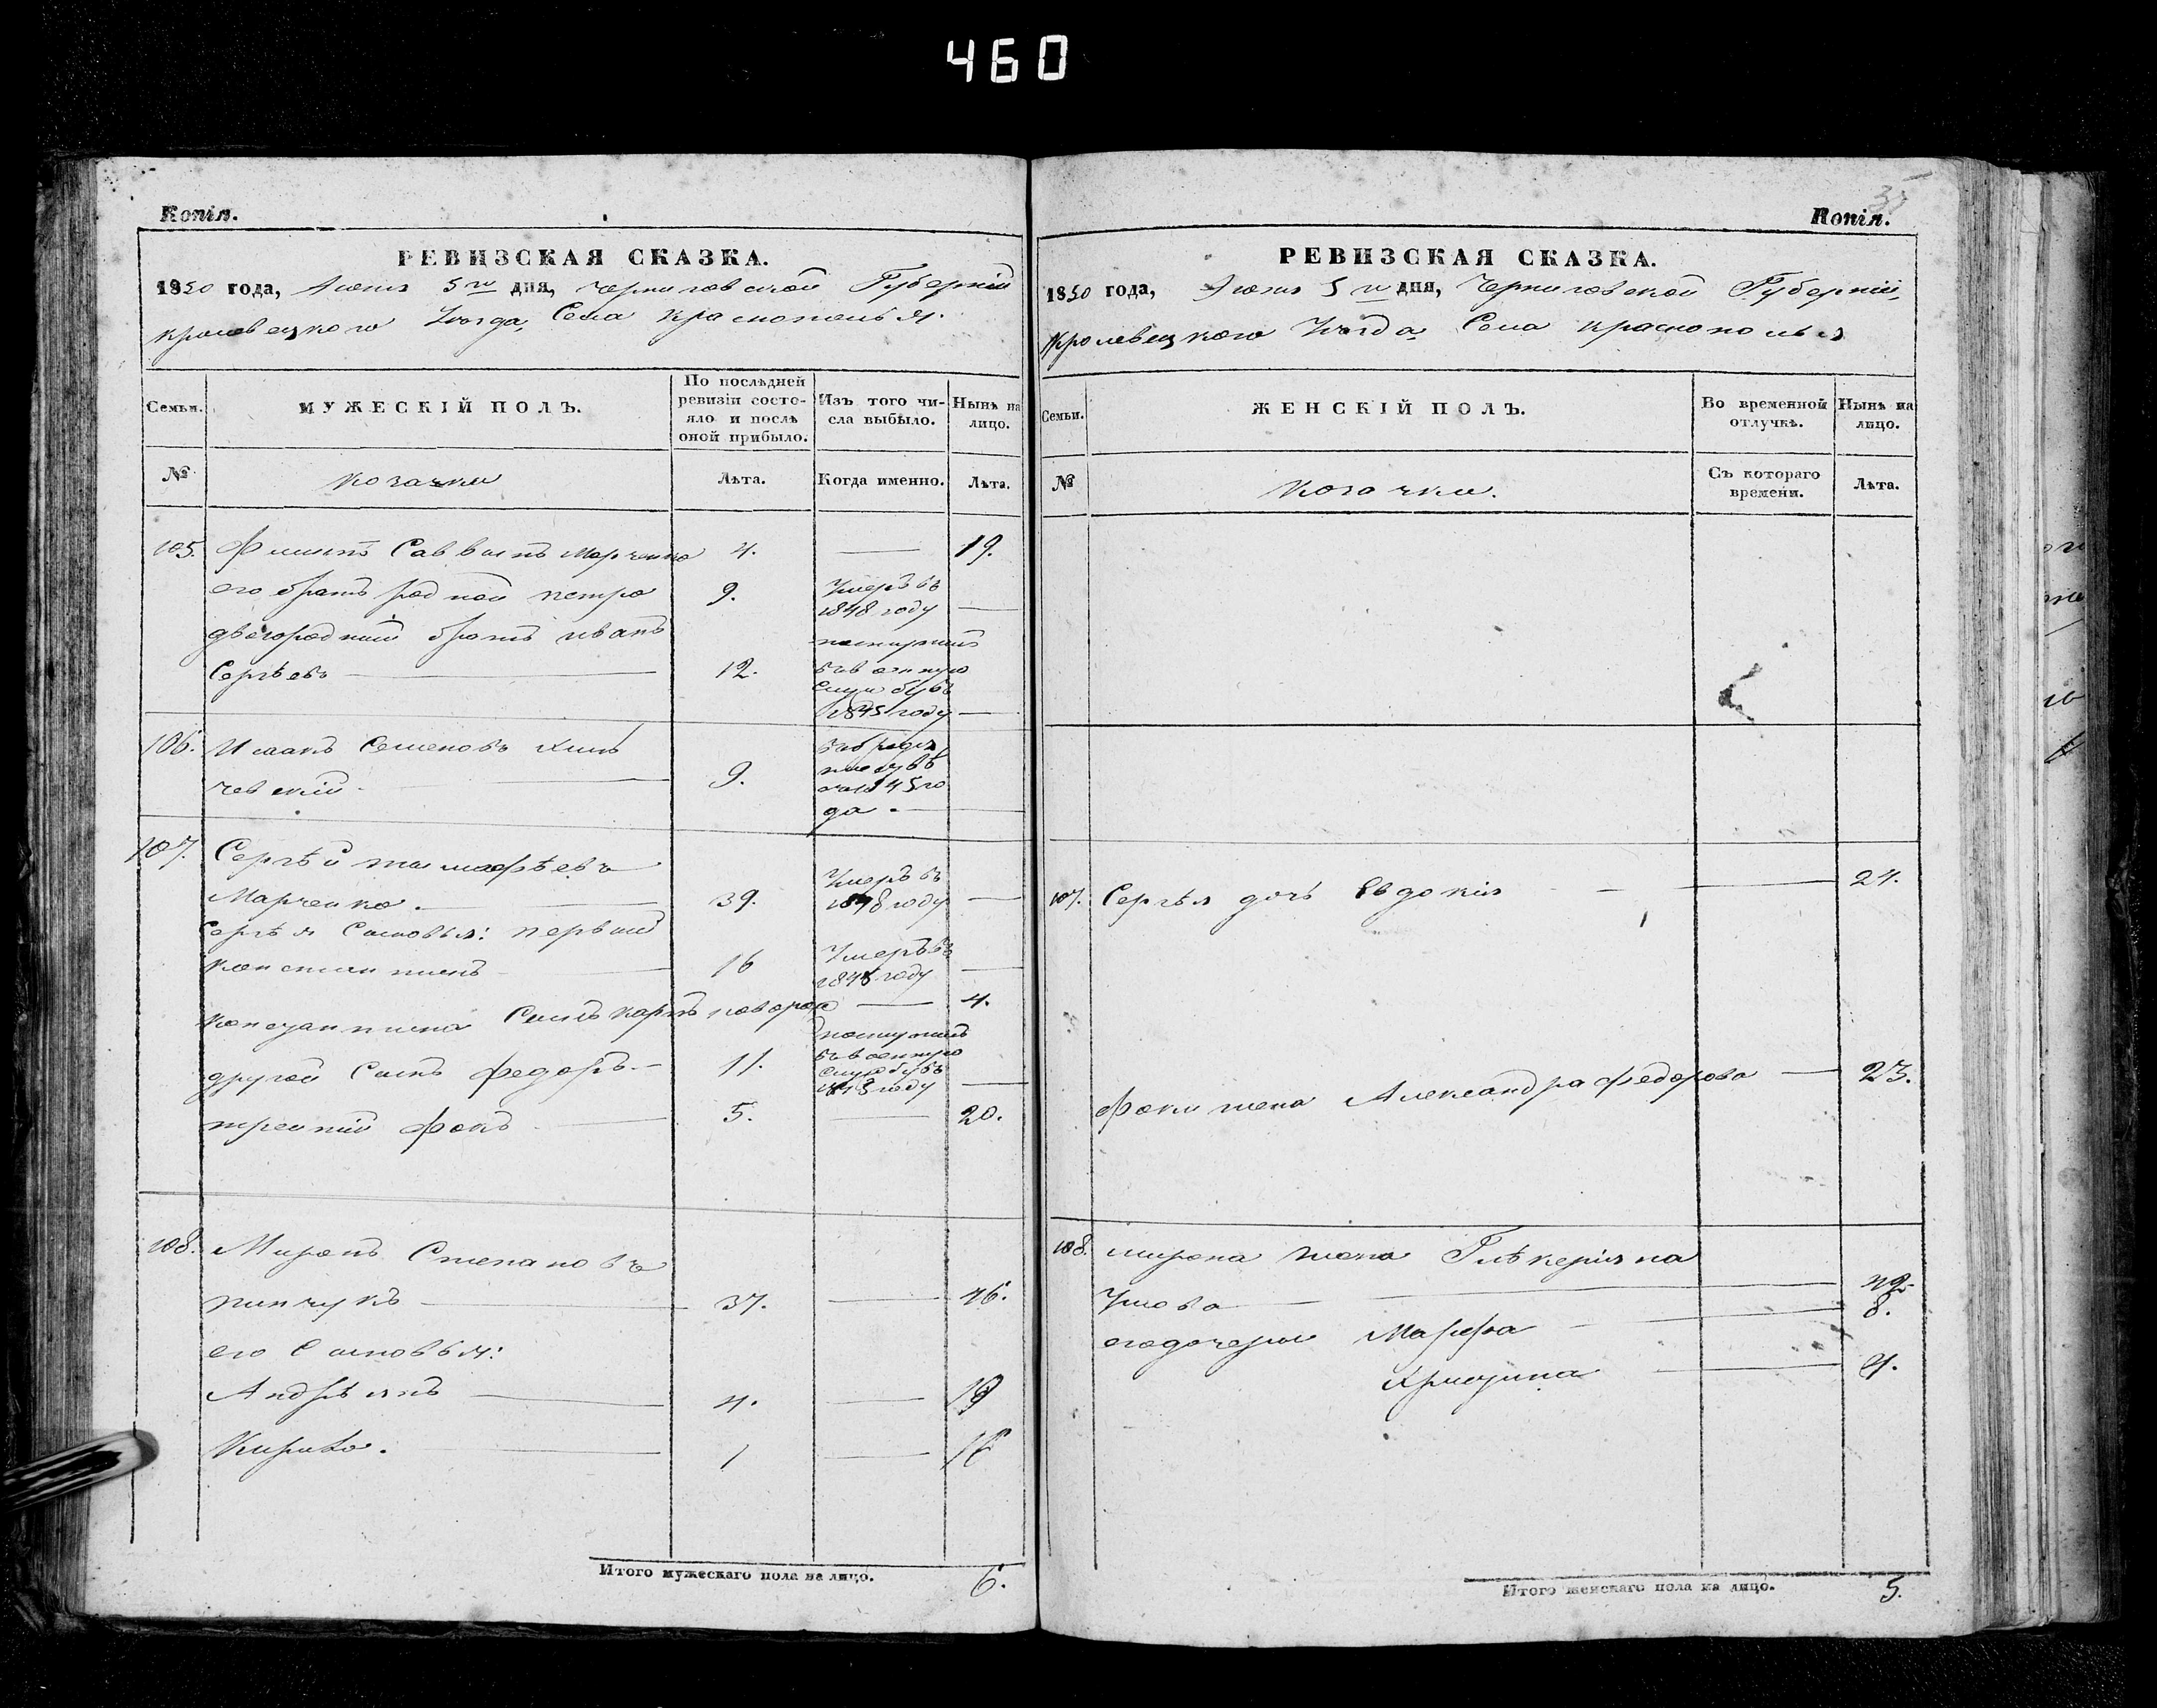 460
Копія.
РЕВИЗСКАЯ СКАЗКА.
1850 года, Июня 5го дня, Черниговской Губерніи
Кролевецкого Уезда, Села Краснополья.
Семьи.
МУЖЕСКІЙ ПОЛЪ.
По послѣдней ревизіи состояло и послѣ оной прибыло.
Изъ того числа выбыло.
Нынѣ на лицо.
№
Козачки
Лѣта.
Когда именно.
Лѣта.
105. Филипъ Саввинъ Марченко 4. — 19.
его братъ родной Петро 9. Умеръ въ
1848 году —
двоюродный братъ Иванъ поступилъ
Сергѣевъ — 12. въ военную
службу въ
1845 году —
106. Исаакъ Семеновъ Хин
чевскій — 9.
1845 го
да —
107. Сергѣй Тимофѣевъ
Марченко. — 39. Умеръ въ
1848 году —
Сергѣя Сыновья: первый
Константинъ — 16 Умеръ въ
1848 году —
Константина Сынъ Карпъ — 4.
другой Сынъ Федоръ — 11. поступилъ
въ военную
службу въ
1843 году —
третій Фокъ — 5. — 20.
108. Миронъ Степановъ
Пинчукъ — 37. — 46.
его Сыновья:
Андрѣянъ — 4. — 19
Кирило. — 1 — 16
Итого мужескаго пола на лицо. 6.
35
Копія.
РЕВИЗСКАЯ СКАЗКА.
1850 года, Июня 5го дня, Черниговской Губерніи,
Кролевецкого Уезда Села Краснополья
Семьи.
ЖЕНСКІЙ ПОЛЪ.
Во временной отлучкѣ.
Нынѣ на лицо.
№
Козачки.
Съ котораго времени.
Лѣта.
107. Сергѣя дочь Евдокія — 24.
Фоки жена Александра Федорова — 23.
108. Мирона жена Глѣкерія На
умова — 42.
его дочери Марфа — 8.
Христина — 4.
Итого женскаго пола на лицо. 5.